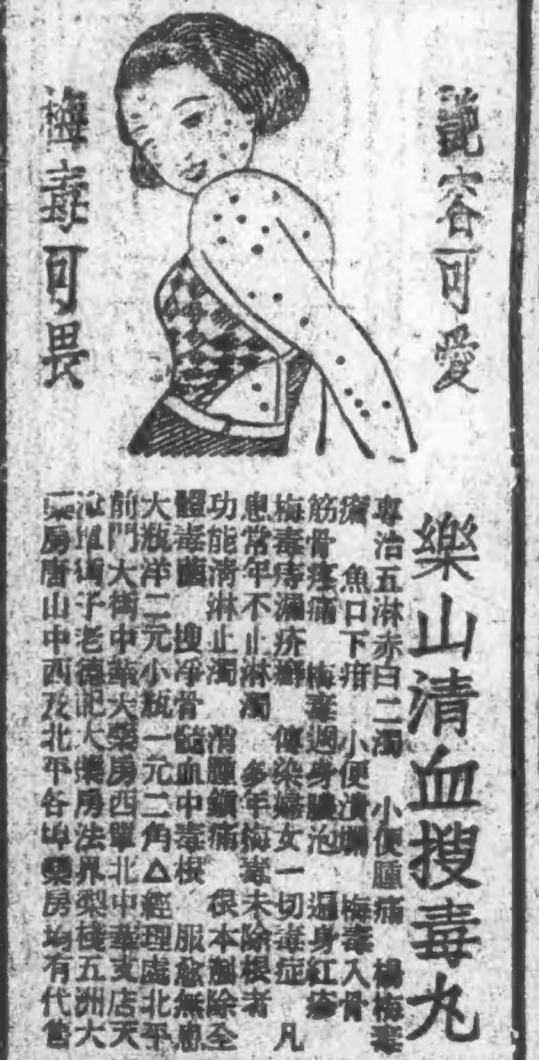 艷容可愛
梅毒可畏
樂山清血搜毒丸
專治五淋赤白二濁　小便腫痛　楊梅毒
瘡　魚口下疳　小便潰爛　梅毒入骨
筋骨疼痛　梅毒週身膿泡　遍身紅疹
梅毒痔漏疥癬　傳染婦女一切毒症　凡
患常年不止淋濁　多年梅毒未除根者
功能清淋止濁　消腫鎮痛　根本剷除全
體毒菌　搜净骨髓血中毒根　服愈無患
大瓶洋二元小瓶一元二角△經理處北平
前門大街中華大藥房西單北中華支店天
津單街子老德記大藥房法界梨棧五洲大
藥房唐山中西及北平各埠藥房均有代售